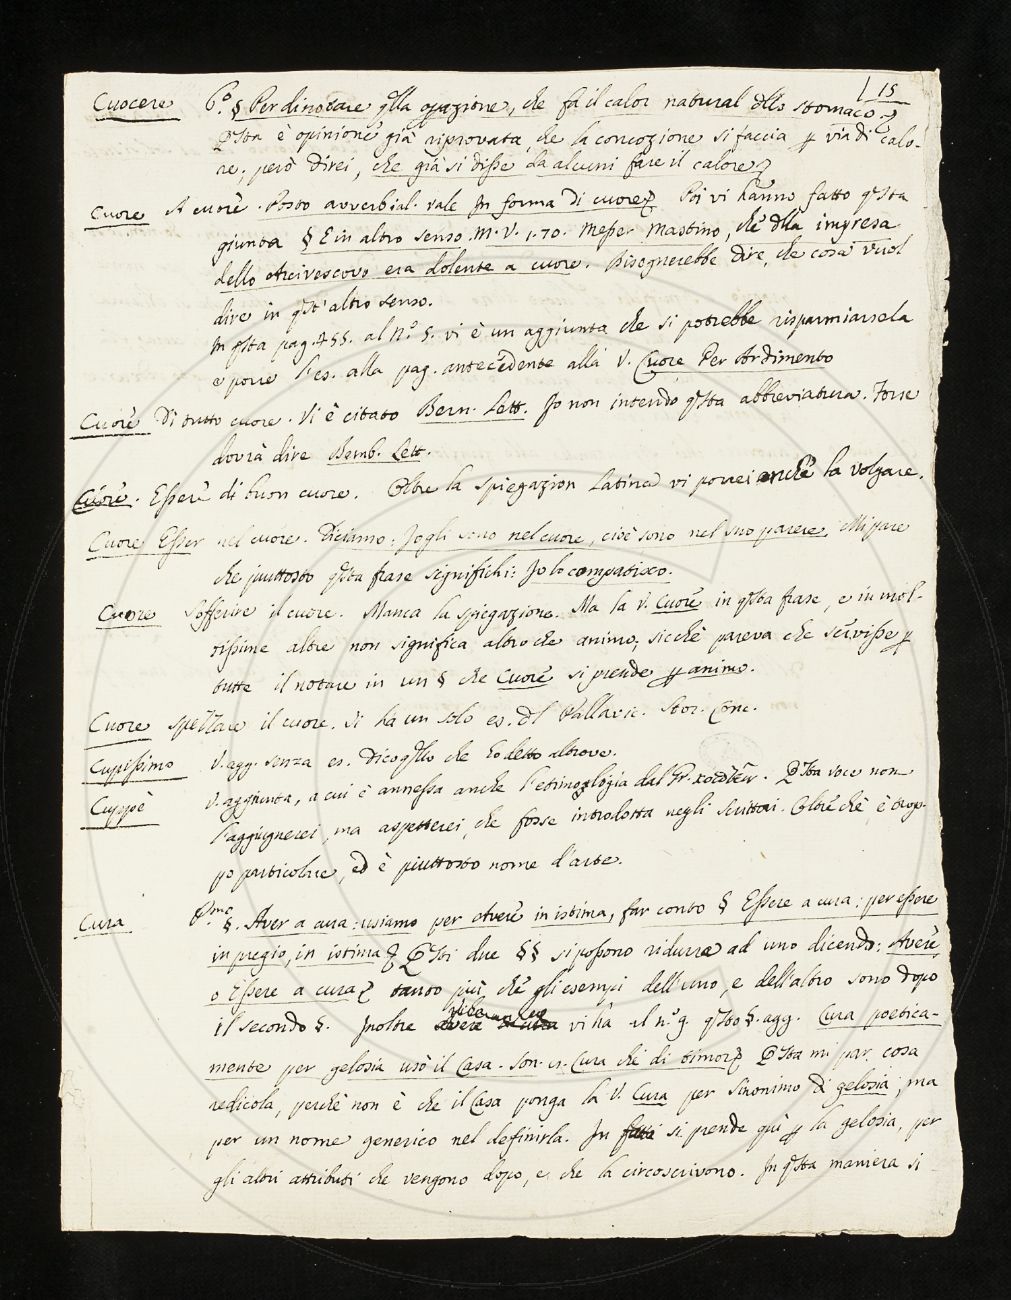 15
Cuocere 6.° § Per dinotare q̃lla opazione, che fa il calor natural dllo stomaco
Q̃sta è opinione già riprovata, che la concozione si faccia p via di calo-
re; però direi, che già si disse da alcuni fare il calore
Cuore A cuore. Posto avverbial. vale In forma di cuore Poi vi hanno fatto q̃sta
giunta § E in altro senso. M. V. 1.70. Messer Mastino, che dlla impresa
dello Arcivescovo era dolente a cuore. Bisegnerebbe dire, che cosa vuol
dire in q̃st' altro senso.
In q̃sta pag. 455. al N.° 5. vi è un aggiunta che si potrebbe risparmiarsela
e porre l'es. alla pag. antecedente alla V. Cuore Per Ardimento
Cuore Di tutto cuore. Vi è citato Bern. Lett. Io non intendo q̃sta abbreviatura. Forse
dovrà dire Bemb. Lett.
Cuore. Essere di buon cuore. Oltre la spiegazion Latina vi porrei anche la volgare.
Cuore Esser nel cuore. Diciamo: Io gli sono nel cuore, cioè sono nel suo parere. Mi pare
che piuttosto q̃sta frase significhi: Io lo compatisco.
Cuore Sofferire il cuore. Manca la spiegazione. Ma la V. Cuore in q̃sta frase, e in mol-
tissime altre non significa altro che animo; sicchè pareva che servisse p
tutte il notare in un § che Cuore si prende p animo.
Cuore spezzare il cuore. Si ha un solo es. dl Pallavic. Stor. Conc.
Cupissimo V. agg. senza es. Dico q̃llo che ho detto altrove.
Cuppè V. aggiunta, a cui è annessa anche l'etimologia dal Gr. Q̃sta voce non
l'aggiugnerei, ma aspetterei, che fosse introdotta negli Scrittori. Oltre chè è trop-
po particolare, ed è piuttosto nome d'arte.
Cura P.mo §. Aver a cura: usiamo per Avere in istima, far conto § Essere a cura: per essere
in pregio, in istima Q̃sti due §§ si possono ridurre ad uno dicendo: Avere,
o Essere a cura tanto più che gli esempi dell'uno, e dell'altro sono dopo
il secondo §. Inoltre vi ha il n.° 9. q̃sto §. agg. Cura poetica-
mente per gelosia usò il Casa. Son. Cura che di timor Q̃sta mi par cosa
redicola, perchè non è che il Casa ponga la V. Cura per Sinonimo di gelosia, ma
per un nome generico nel definirla. In si prende quì p la gelosia, per
gli altri attributi che vengono dopo, e che la circoscrivono. In q̃sta maniera si